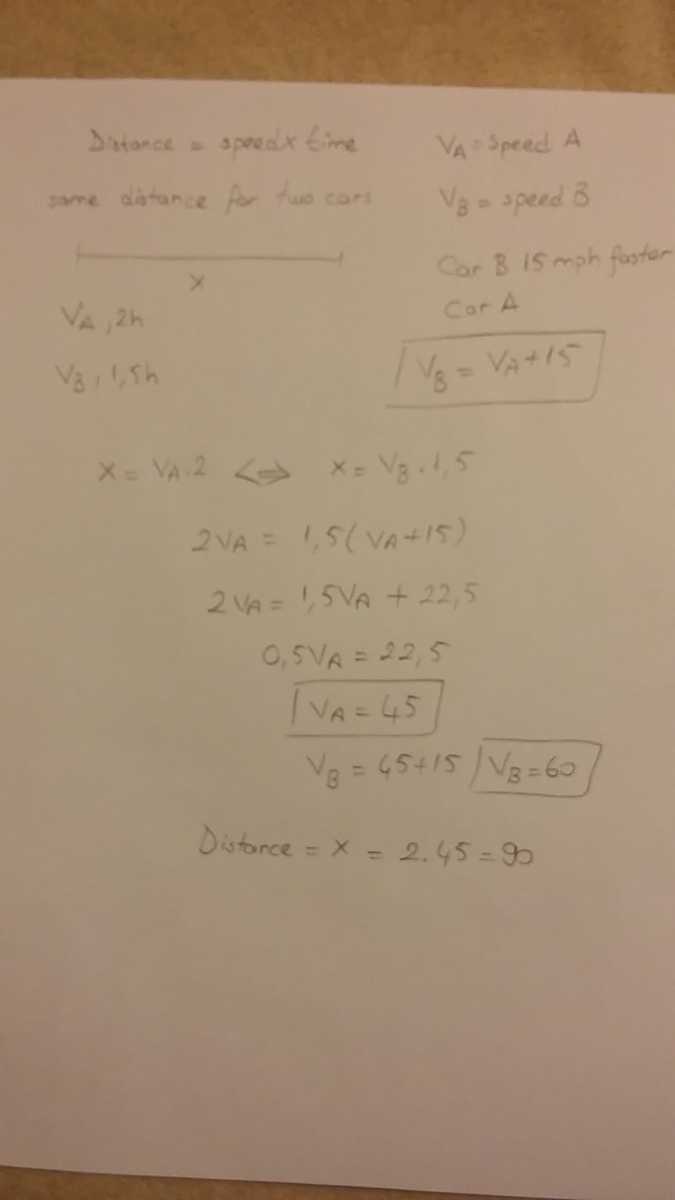 Distance = speed x time
same distance for two cars
x
VA, 2h
VB, 1,5h
VA = Speed A
VB = speed B
Car B 15 mph faster
Car A
VB = VA + 15
x = VA . 2 <=> x = VB . 1,5
2VA = 1,5(VA+15)
2VA = 1,5VA + 22,5
0,5VA = 22,5
VA = 45
VB = 45+15 VB = 60
Distance = x = 2.45 = 90